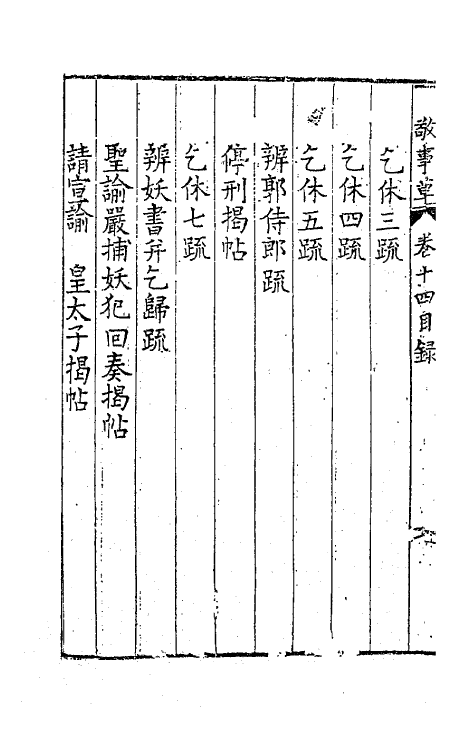 敬事草 卷十四目録
乞休三疏
乞休四疏
乞休五疏
辨郭侍郎疏
停刑揭帖
乞休七疏
辨妖書并乞歸疏
聖諭嚴捕妖犯回奏揭帖
請宣諭 皇太子揭帖